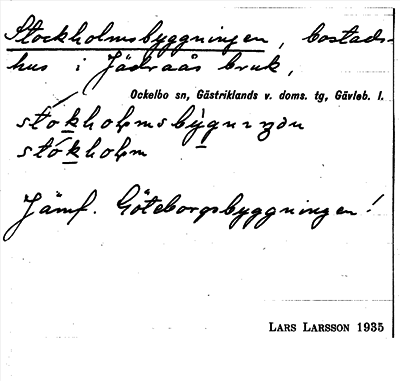 Stockholmsbyggningen, bostads-
hus i Jädraås bruk,
Ockelbo sn, Gästriklands v. doms. tg, Gävleb. l.
stókholmsbỳgnıŋən
stókholm
Jämf. Göteborgsbyggningen!
LARS LARSSON 1935